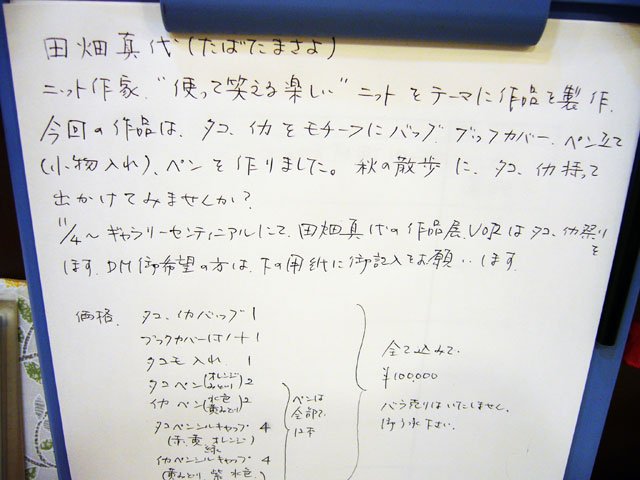 田畑真代(たばたまさよ)
ニット作家. "使って笑える楽しい" ニットをテーマに作品を製作.
今回の作品は、タコ、イカをモチーフにバッグ、ブックカバー、ペン立て
(小物入れ)、ペンを作りました。秋の散歩に、タコ、イカ持って
出かけてみませんか?
11/4〜ギャラリーセンティニアルにて、田畑真代の作品展、はタコ、イカ祭りを
します. DM御希望の方は、下の用紙に御記入をお願いします.
価格. タコ、イカバッグ 1
ブックカバー 1
タコ 入れ 1
タコペン(オレンジ みどり)2
イカペン(水色 黄みどり)2
タコペンシルキャップ 4
(赤、黄、オレンジ
緑
イカペンシルキャップ 4
(黄みどり 紫 水色.
ペンは
全部で
12本
全て込みで.
¥100,000
バラ売りはいたしません.
御了承下さい.